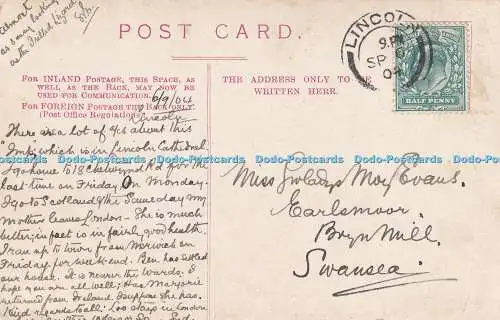 almost
as funny looking
as the Frilled Lizard
POST CARD.
FOR INLAND POSTAGE, THIS SPACE, AS
WELL AS THE BACK, MAY NOW BE
USED FOR COMMUNICATION.
FOR FOREIGN POSTAGE THE BACK ONLY.
(Post Office Regulations).
THE ADDRESS ONLY TO BE
WRITTEN HERE.
LINCOLN
9.PM
SP 6
04
HALF PENNY
6/9/04
Lincoln
There are a lot of yt about this
Imp which is in Lincoln Cathedral.
I go home to 18 Chetwynd Rd for the
last time on Friday. On Monday
I go to Scotland & the same day my
mother leaves London - She is much
better; in fact is in fairly good health
I ran up to town from Norwich on
Friday for week end. Ben has settled
our house. It is nearer the Wards. I
hope you are all well; Has Marjorie
returned from Ireland I suppose she has.
Kind regards to all. Lou stays in London
Miss Gwladys May Evans.
Earlsmoor.
Brynmill.
Swansea.
Dodo-Postcards Dodo-Postcards Dodo-Postcards Dodo-Postcards Dodo-Postcards Dodo-Postcards